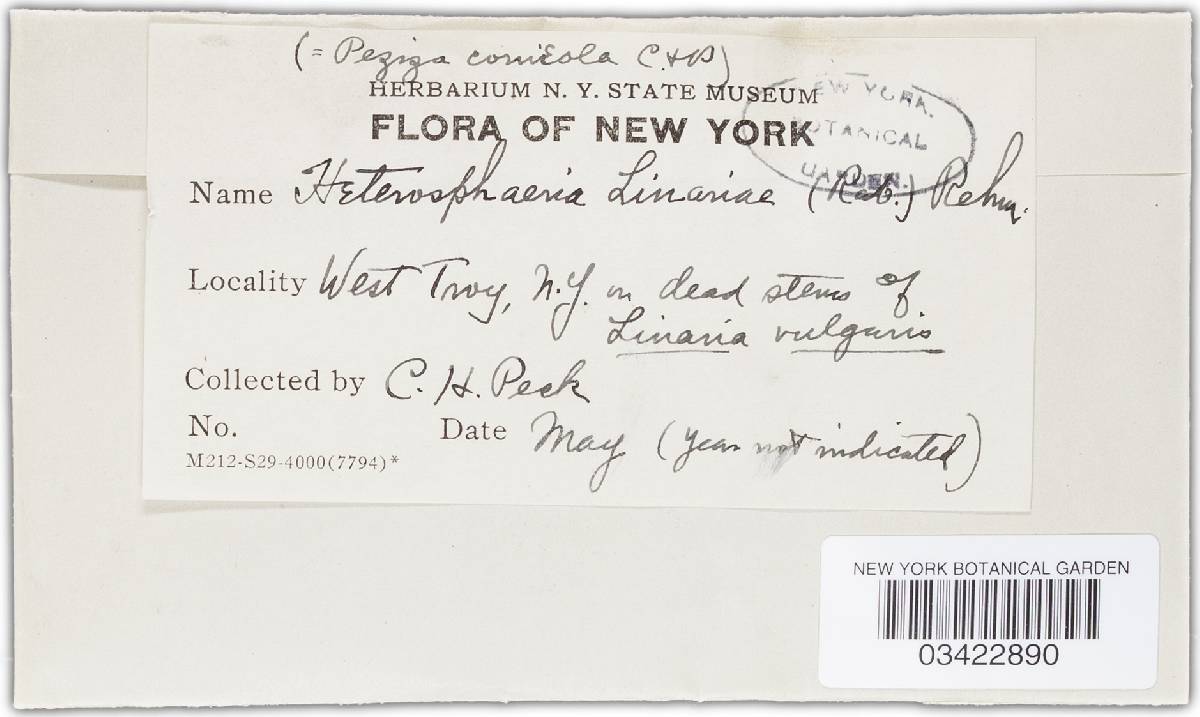 (= Peziza cornicola C & P)
HERBARIUM N. Y. STATE MUSEUM
FLORA OF NEW YORK
NEW YORK
BOTANICAL
GARDEN.
Name Heterosphaeria Linariae (Rab.) Rehm.
Locality West Troy, N.Y. on dead stems of
Linaria vulgaris
Collected by C. H. Peck
No. Date May (year not indicated)
M212-S29-4000(7794)*
NEW YORK BOTANICAL GARDEN
03422890